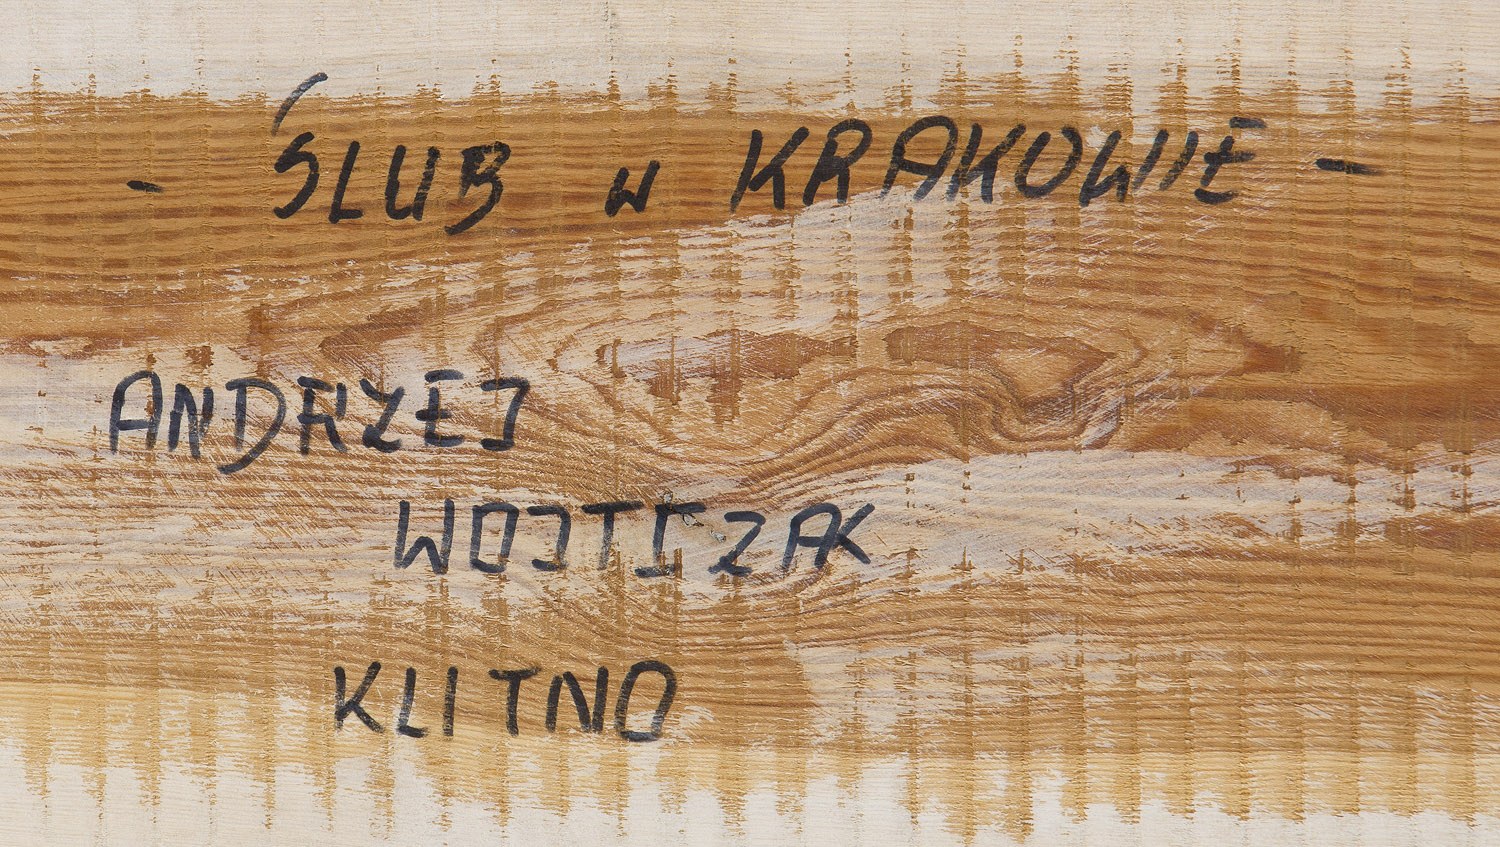 - ŚLUB W KRAKOWIE -
ANDRZEJ
WOJTCZAK
KLITNO